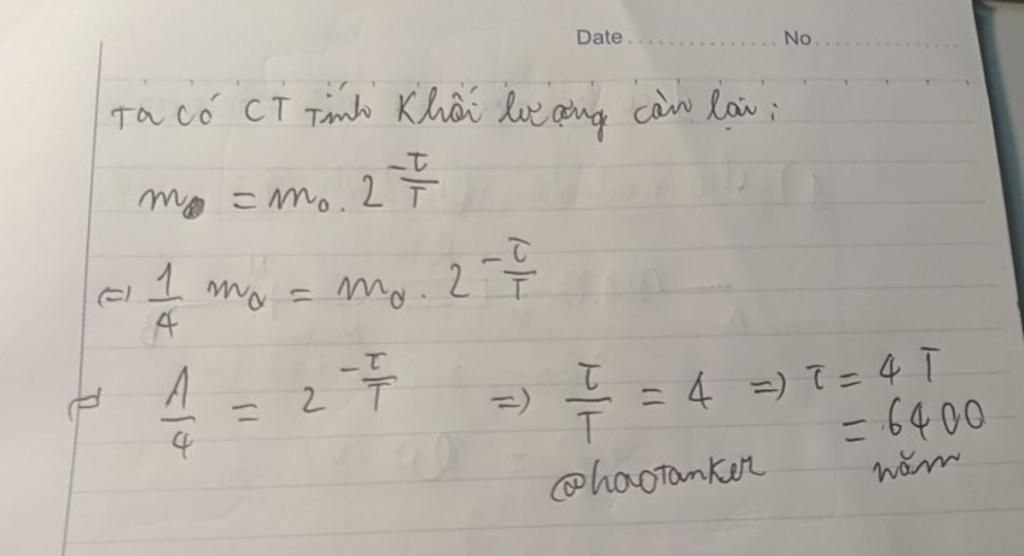 Date............... No...............
Ta có CT Tính Khối lượng còn lại:
m = m₀. 2^(-t/T)
(=) 1/4 m₀ = m₀. 2^(-t/T)
1/4 = 2^(-t/T) =) t/T = 4 =) t = 4 T
= 6400
@haotanker năm